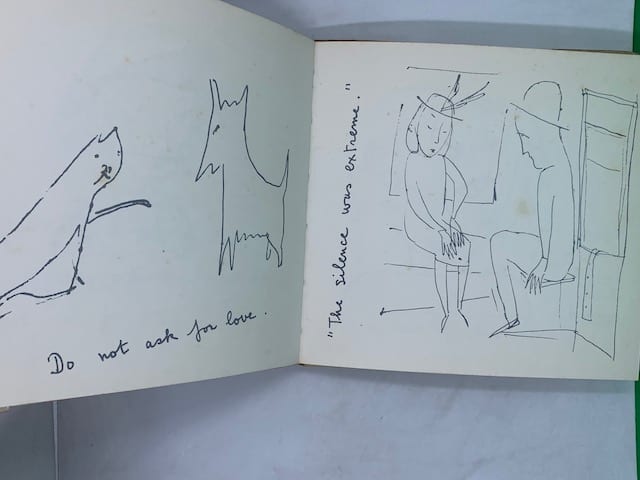 Do not ask for love.
"The silence was extreme."